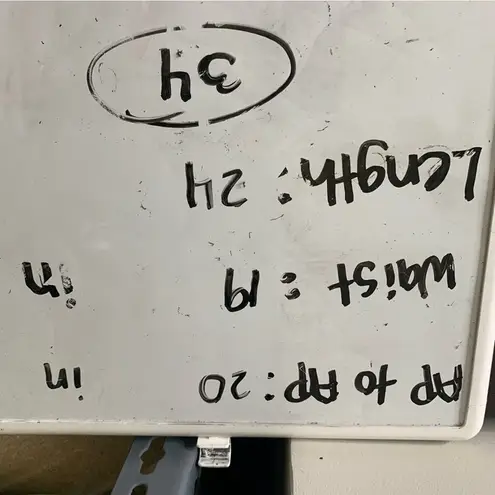 AP to AP: 20 in
Waist: 19 in
Length: 24
34